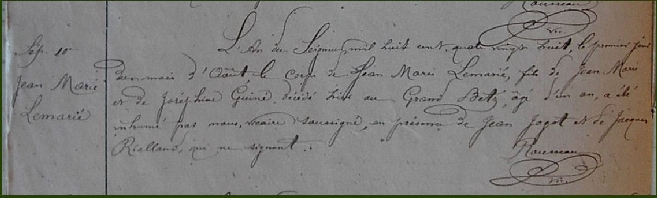 Rousseau
Sép. 10
Jean Marie
Lemarié
L'An du Seigneur mil huit cent quatre vingt huit, le premier jour
du mois d'Août le corps de Jean Marie Lemarié, fils de Jean Marie
et de Joséphine Guiné, décédé hier au Grand Betz, âgé d'un an, a été
inhumé par nous, vicaire soussigné, en présence de Jean Jagot et de Jacques
Riallano, qui ne signent.
Rousseau
vic.